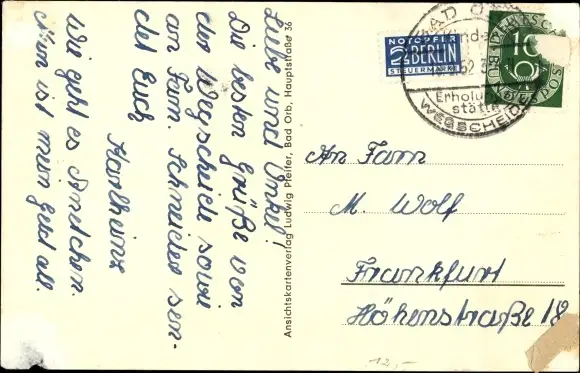 Liebe und Onkel!
Die besten Grüße von
der Wegscheide sowie
an Fam. Schneider sen-
det Euch
Karlheinz
Wie geht es Gretchen.
Nun ist mein Geld all.
Ansichtskartenverlag Ludwig Pfeifer, Bad Orb, Hauptstraße 36
NOTOPFER
2 BERLIN
STEUERMARKE
BAD O
52
Erholu
stätte
WEGSCHEIDE
10
An Fam
M. Wolf
Frankfurt
Höhenstraße 18
12,-